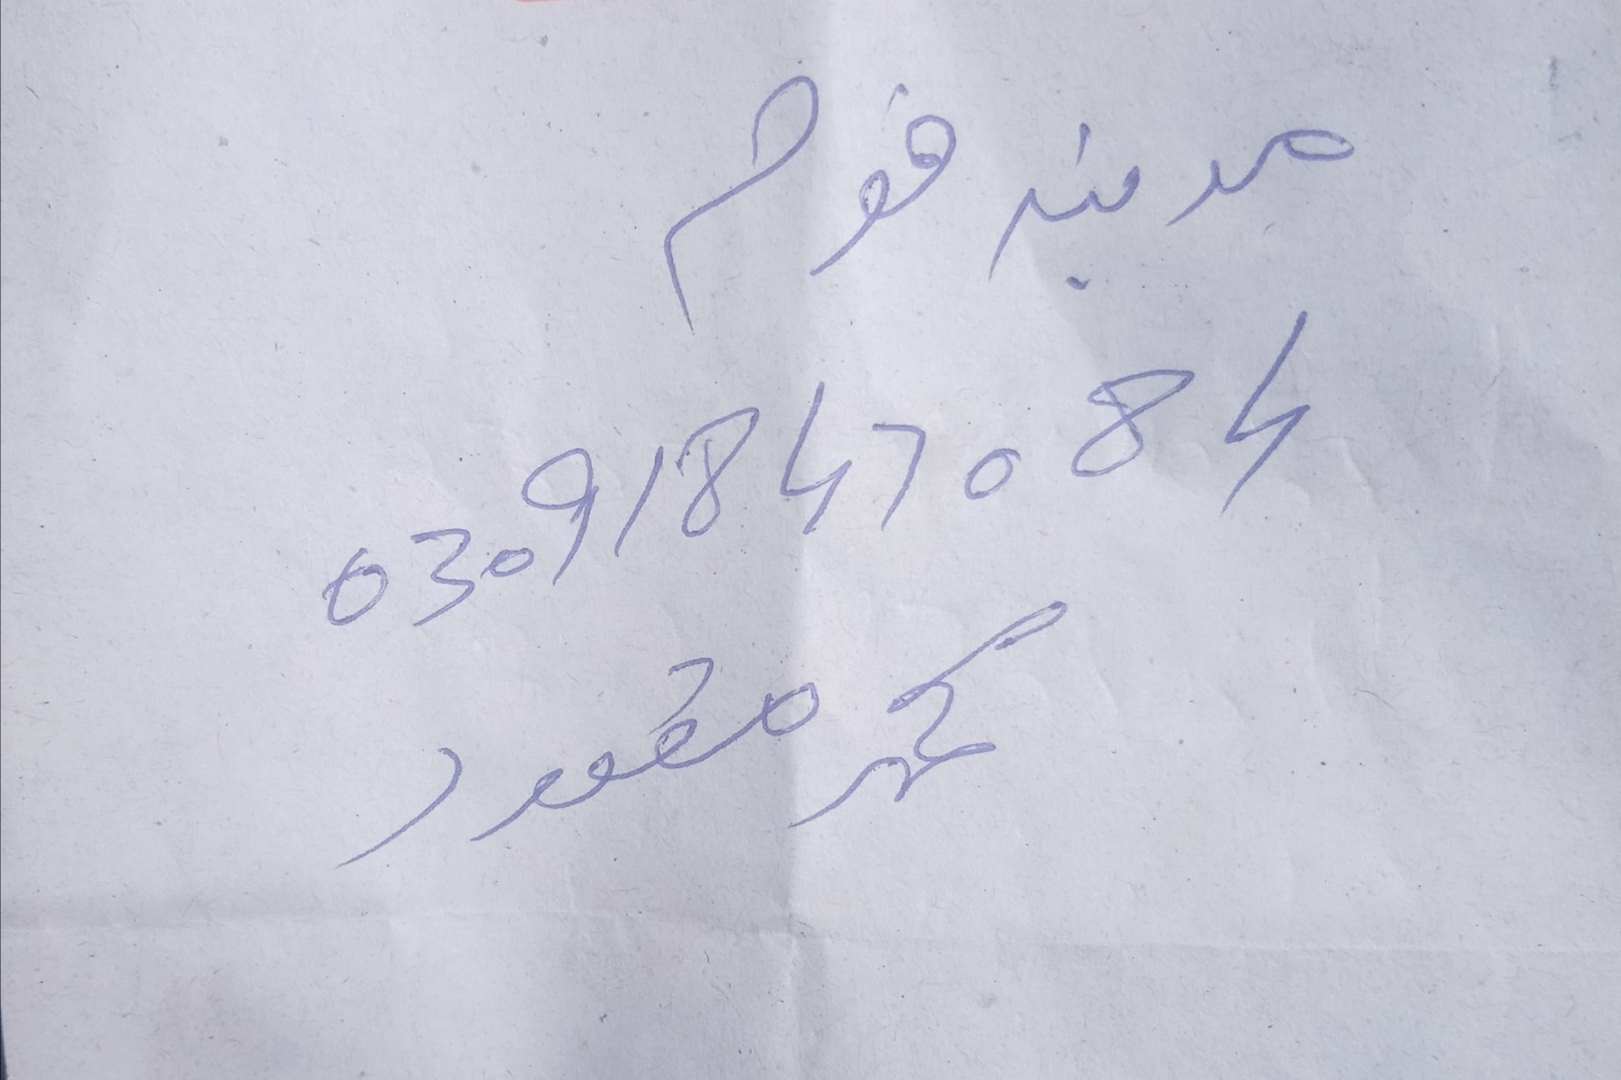 مدینہ فوم
03091847084
محمد مقصود